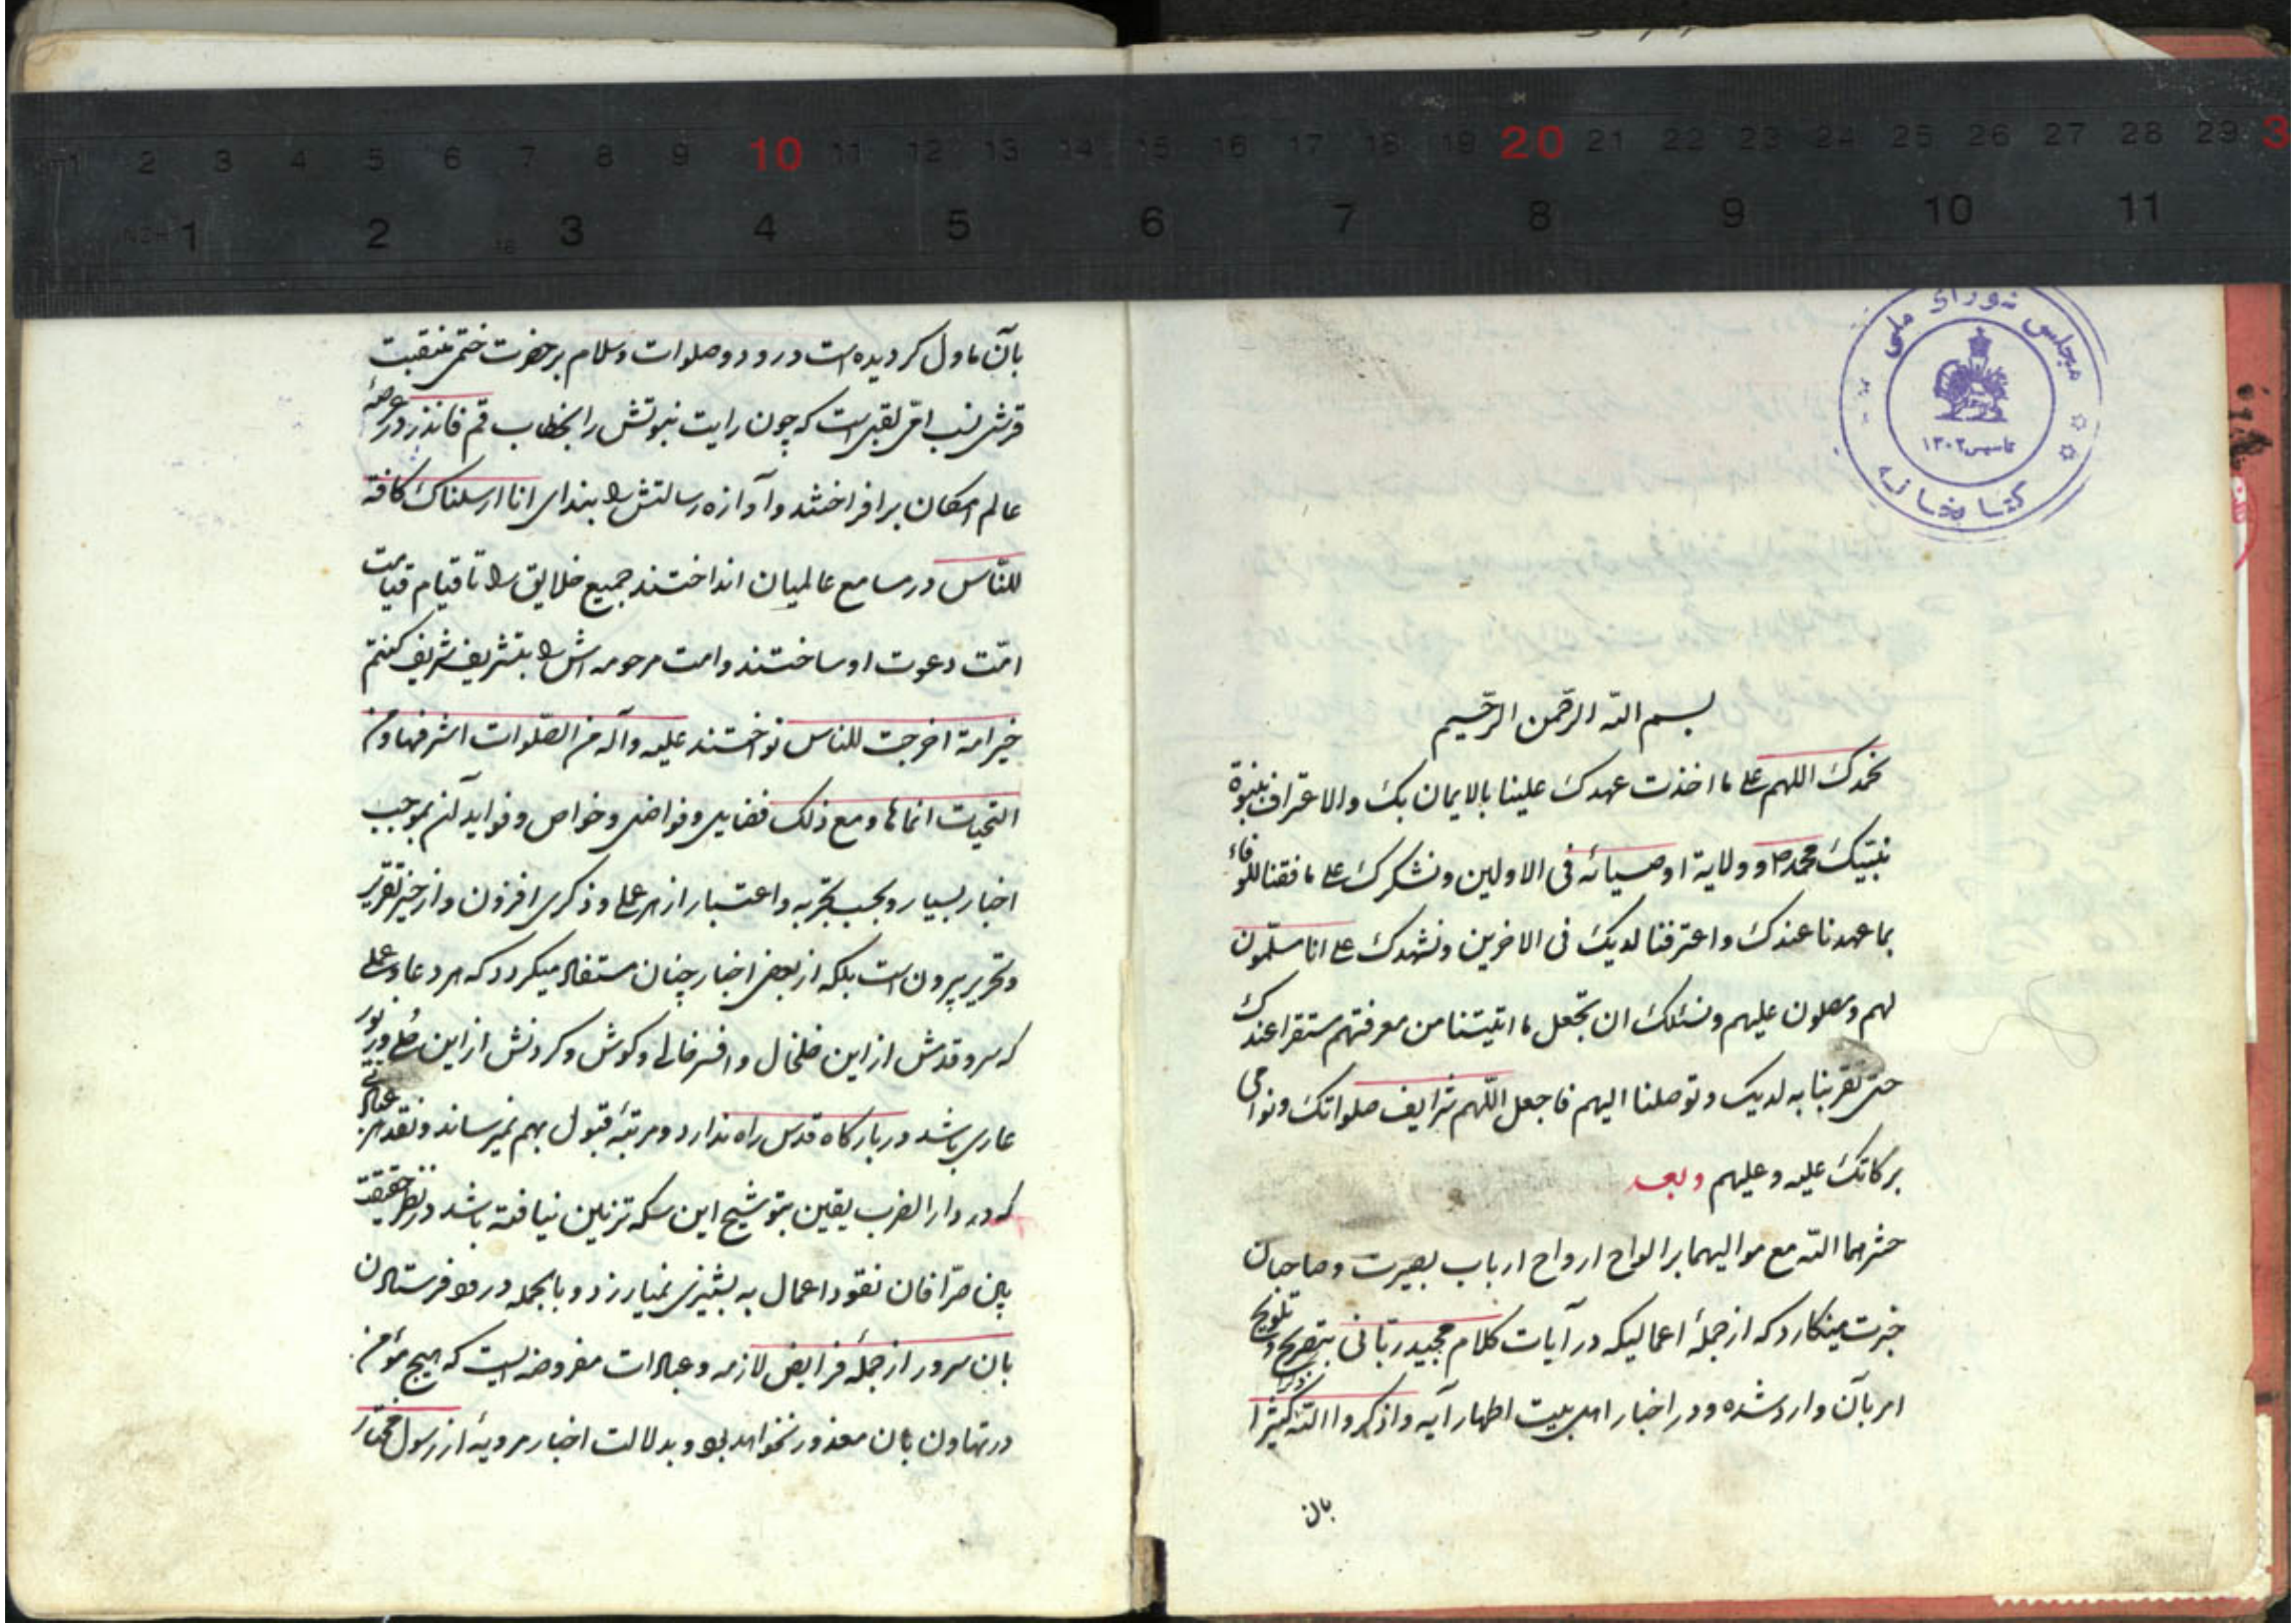 مجلس شورای ملی
تاسیس ۱۳۰۲
کتابخانه
بسم الله الرحمن الرحیم
نحمدک اللهم علی ما اخذت عهدک علینا بالایمان بک والاعتراف بنبوة
نبیک محمد ص و ولایة اوصیائه فی الاولین ونشکرک علی ما وفقنا للوفاء
بما عهدنا عندک واعترفنا لدیک فی الاخرین ونشهدک علی انا مسلّمون
لهم ومصلون علیهم ونسئلک ان تجعل ما اتیتنا من معرفتهم مستقرا عندک
حتی تقربنا به لدیک وتوصلنا الیهم فاجعل اللّهم شرایف صلواتک ونوامی
برکاتک علیه وعلیهم وبعد
حشرهما الله مع موالیهما بر الواح ارواح ارباب بصیرت وصاحبان
خبرت مینکارد که از جملهٔ اعمالیکه در آیات کلام مجید ربّانی بتصریح وتلویح
امر بآن وارد شده ودر اخبار اهل بیت اطهار آیه واذکروا الله ذکرا کثیرا
بآن
بآن ماول کردیده است درود وصلوات وسلام بر حضرت ختمی منقبت
قرشی نسب امّی لقبی است که چون رایت نبوتش را بخطاب قم فانذر در عرصهٔ
عالم امکان برافراختند وآوازه رسالتش را بندای انا ارسلناک کافة
للنّاس در مسامع عالمیان انداختند جمیع خلایق را تا قیام قیامت
امّت دعوت او ساختند وامت مرحومه اش را بتشریف شریف کنتم
خیر امة اخرجت للناس نواختند علیه وآله من الصّلوات اشرفها ومن
التحیات انماها ومع ذلک فضایل وفواضل وخواص وفواید آن بموجب
اخبار بسیار وبحسب تجربه واعتبار از هر عملی وذکری افزون واز حیز تقریر
وتحریر بیرون است بلکه از بعضی اخبار چنان مستفاد میکردد که هر دعا وعملی
که سر وقدش از این خلخال وافسر خالی وکوش وکردنش از این حلی وزیور
عاری باشد در بارکاه قدس راه ندارد ومرتبهٔ قبول بهم نمیرساند ونقد هر عبادتی
که در دار الضرب یقین بتوشیح این سکه تزیین نیافته باشد در نظر حقیقت
بین صرّافان نقود اعمال به پشیزی نمیارزد وبالجمله درود فرستادن
بآن سرور از جملهٔ فرایض لازمه وعبادات مفروضه ایست که هیچ مؤمن
در تهاون بآن معذور نخواهد بود وبدلالت اخبار مرویهٔ از رسول مختار